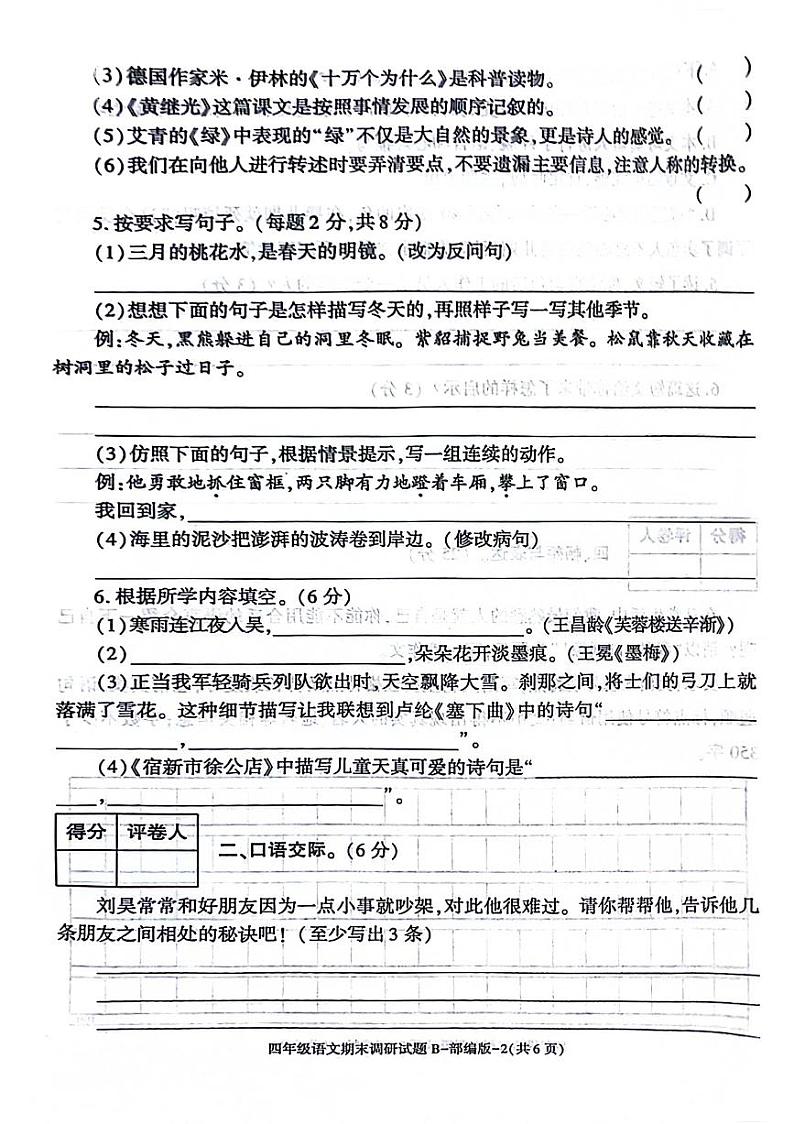 (3)德国作家米·伊林的《十万个为什么》是科普读物。 (    )
(4)《黄继光》这篇课文是按照事情发展的顺序记叙的。 (    )
(5)艾青的《绿》中表现的“绿”不仅是大自然的景象,更是诗人的感觉。 (    )
(6)我们在向他人进行转述时要弄清要点,不要遗漏主要信息,注意人称的转换。
(    )
5.按要求写句子。(每题2分,共8分)
(1)三月的桃花水,是春天的明镜。(改为反问句)
(2)想想下面的句子是怎样描写冬天的,再照样子写一写其他季节。
例:冬天,黑熊躲进自己的洞里冬眠。紫貂捕捉野兔当美餐。松鼠靠秋天收藏在
树洞里的松子过日子。
(3)仿照下面的句子,根据情景提示,写一组连续的动作。
例:他勇敢地抓住窗框,两只脚有力地蹬着车厢,攀上了窗口。
我回到家,
(4)海里的泥沙把澎湃的波涛卷到岸边。(修改病句)
6.根据所学内容填空。(6分)
(1)寒雨连江夜入吴,                    。(王昌龄《芙蓉楼送辛渐》)
(2)                    ,朵朵花开淡墨痕。(王冕《墨梅》)
(3)正当我军轻骑兵列队欲出时,天空飘降大雪。刹那之间,将士们的弓刀上就
落满了雪花。这种细节描写让我联想到卢纶《塞下曲》中的诗句“
,                    ”。
(4)《宿新市徐公店》中描写儿童天真可爱的诗句是“
,                    ”。
得分 评卷人
二、口语交际。(6分)
刘昊常常和好朋友因为一点小事就吵架,对此他很难过。请你帮帮他,告诉他几
条朋友之间相处的秘诀吧!(至少写出3条)
四年级语文期末调研试题B-部编版-2(共6页)